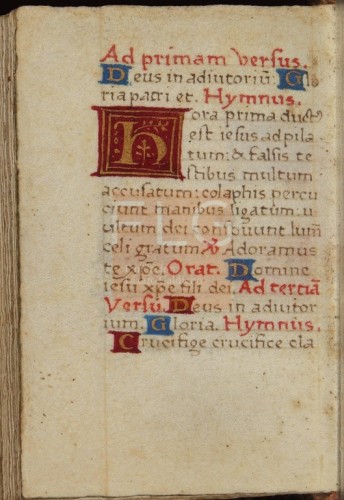 Ad primam versus.
Deus in adiutoriū: Glo
ria patri et. Hymnus.
Hora prima duct
est iesus ad pila
tum: & falsis te
stibus multum
accusatum: colaphis percu
ciunt manibus ligatum: u
ultum dei conspuunt lum̄
celi gratum ℟ Adoramus
te xp̄e. Orat. Domine
iesu xp̄e fili dei. Ad tertiā
Versu. Deus in adiutor
ium. Gloria. Hymnus.
Crucifige crucifice cla